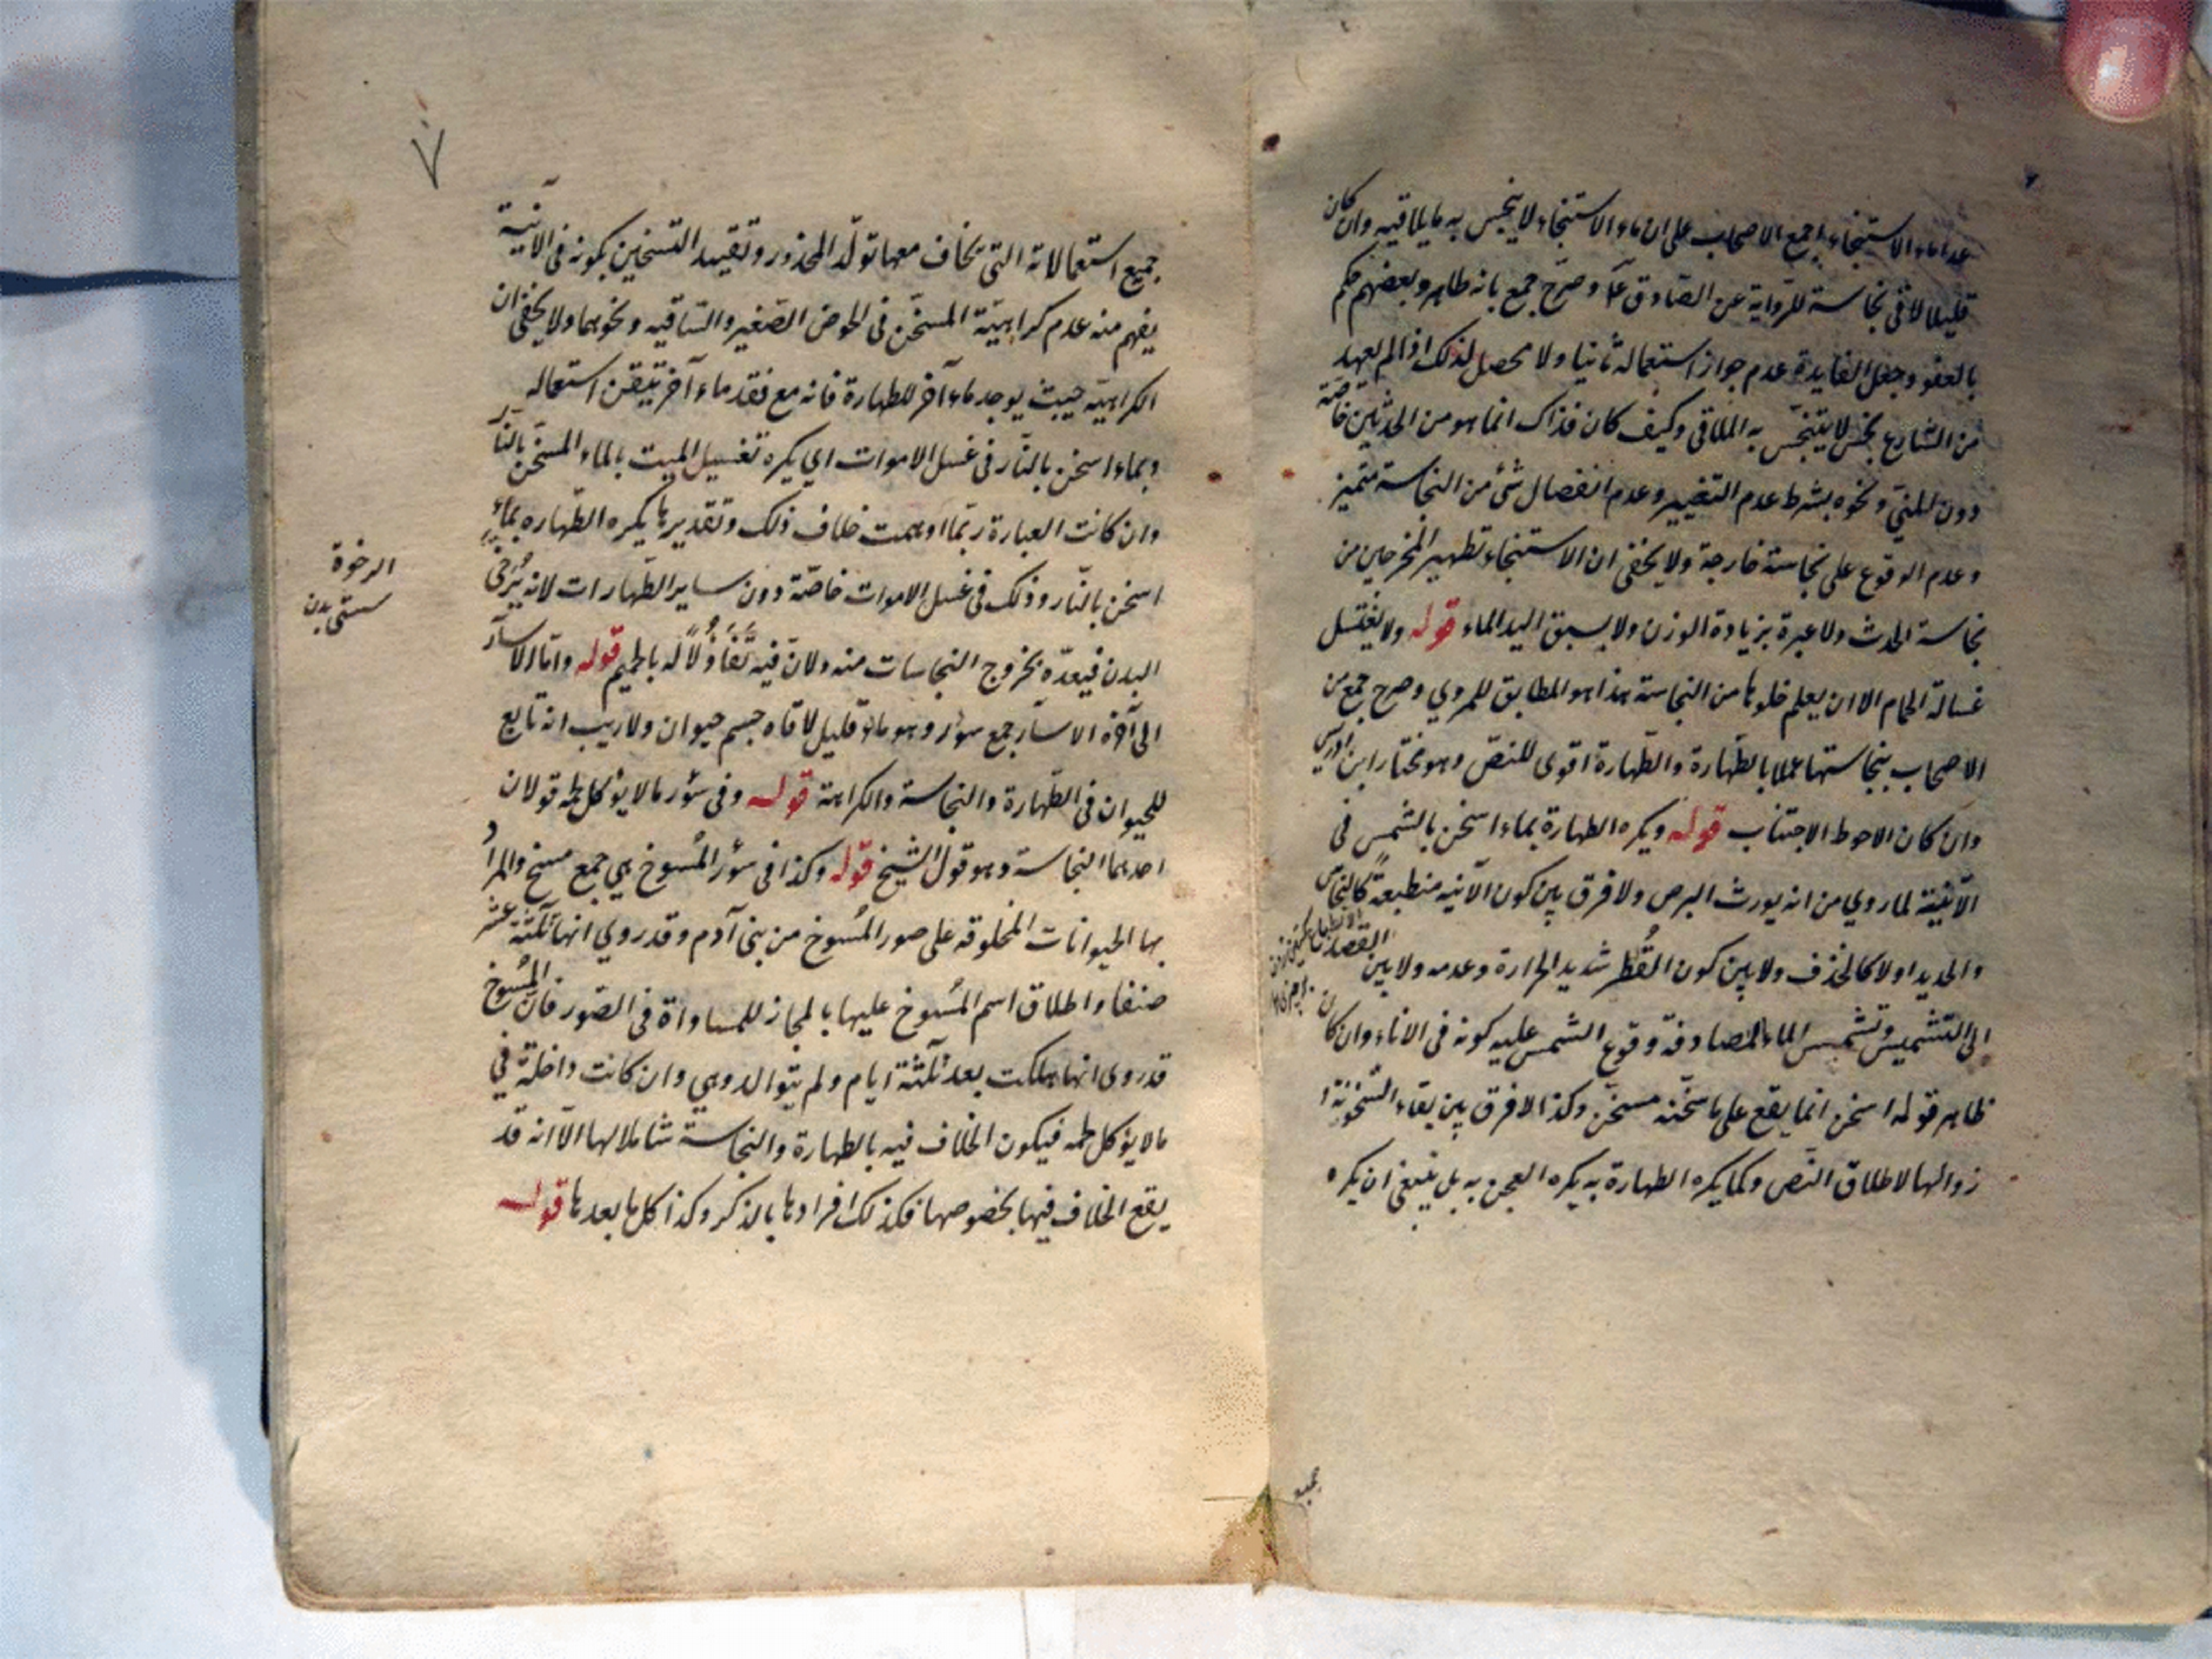 عدا ماء الاستنجاء اجمع الاصحاب على ان ماء الاستنجاء لا ينجس به ما يلاقيه وان كان
قليلا لاقى نجاسة للرواية عن الصادق ع وصرح جمع بانه طاهر وبعضهم حكم
بالعفو وجعل الفايدة عدم جواز استعماله ثانيا ولا محصل لذلك اذا لم يعهد
من الشارع نجس لا يتنجس به الملاقي وكيف كان فذاك انما هو من الحدثين خاصة
دون المني ونحوه بشرط عدم التغيير وعدم انفصال شئ من النجاسة متميز
وعدم الوقوع على نجاسة خارجة ولا يخفى ان الاستنجاء تطهير المخرجين من
نجاسة الحدث ولا عبرة بزيادة الوزن ولا بسبق اليد الماء قوله ولا يغتسل
غسالة الحمام الا ان يعلم خلوها من النجاسة هذا هو المطابق للمروي وصرح جمع من
الاصحاب بنجاستها عملا بالظهارة والطهارة اقوى للنص وهو مختار ابن ادريس
وان كان الاحوط الاجتناب قوله ويكره الطهارة بماء اسخن بالشمس فى
الآنية لما روي من انه يورث البرص ولا فرق بين كون الآنية منطبعة كالنحاس
والحديد اولا كالخذف ولا بين كون القطر شديد الحرارة وعدمه ولا بين القصد
الى التشميس وتشمس الماء لمصادفة وقوع الشمس عليه كونه فى الاناء وان كان
ظاهر قوله اسخن انما يقع على ما سخنه مسخن وكذا لا فرق بين بقاء السخونة او
زوالها لاطلاق النص وكما يكره الطهارة به يكره العجن به بل ينبغى ان يكره
جميع
٧
جميع استعمالاته التي يخاف معها تولد المحذور وتقييد التسخين بكونه فى الآنية
يفهم منه عدم كراهية المسخن فى الحوض الصغير والساقيه ونحوهما ولا يخفى ان
الكراهية حيث يوجد ماء آخر للطهارة فانه مع فقد ماء آخر يتيقن استعماله
وبماء اسخن بالنار فى غسل الاموات اي يكره تغسيل الميت بالماء المسخن بالنار
وان كانت العبارة ربما اوهمت خلاف ذلك وتقديرها يكره الطهاره بماء
اسخن بالنار وذلك فى غسل الاموات خاصة دون ساير الطهارات لانه يرخى
البدن فيعدّه بخروج النجاسات منه ولان فيه تفاؤلا له بالحميم قوله واما الاسآر
الى آخره الاسآر جمع سؤر وهو ماء قليل لاقاه جسم حيوان ولا ريب انه تابع
للحيوان فى الطهارة والنجاسة والكراهة قوله وفى سؤر ما لا يؤكل لحمه قولان
احدهما النجاسة وهو قول الشيخ قوله وكذا فى سؤر المسوخ هي جمع مسخ والمراد
بها الحيوانات المخلوقة على صور المسوخ من بنى آدم وقد روي انها ثلثة عشر
صنفا واطلاق اسم المسوخ عليها بالمجاز للمساواة فى الصور فان المسوخ
قد روى انها هلكت بعد ثلثة ايام ولم يتوالد وهي وان كانت داخلة في
ما لا يؤكل لحمه فيكون الخلاف فيه بالطهارة والنجاسة شاملا لها الا انه قد
يقع الخلاف فيها بخصوصها فكذلك افرادها بالذكر وكذا كل ما بعدها قوله
الرخوة
سستى بدن